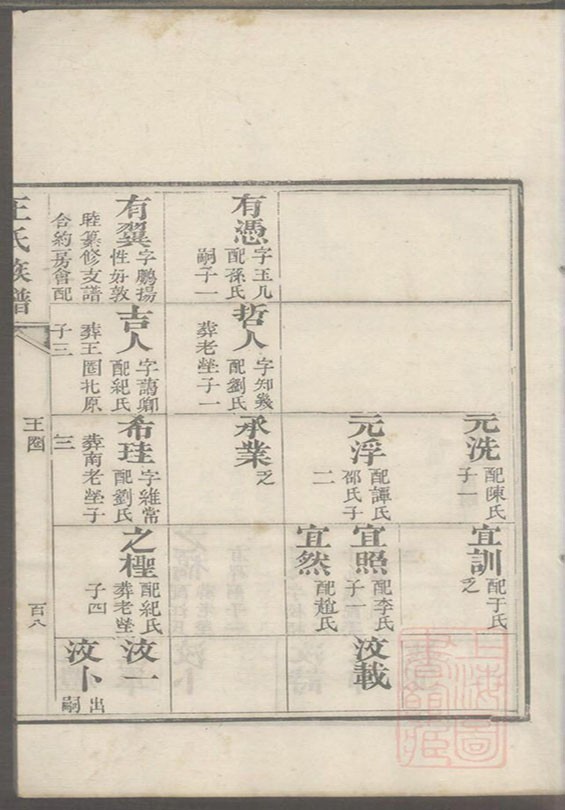 元洗
配陳氏
子一
宜訓
配于氏
乏
元浮
配譚氏
邵氏子
二
宜照
配李氏
子一
汶載
宜然
配趙氏
有憑
字玉几
配孫氏
嗣子一
哲人
字知幾
配劉氏
葬老塋子一
承業
乏
有翼
字鵬揚
性好敦
睦纂修支譜
合約房會配
吉人
字藹卿
配紀氏
葬王圈北原
子三
希珪
字維常
配劉氏
葬南老塋子
三
之檉
配紀氏
葬老塋
子四
汶一
汶卜
出
嗣
王氏族譜
王圈
百八
上海圖
書館藏